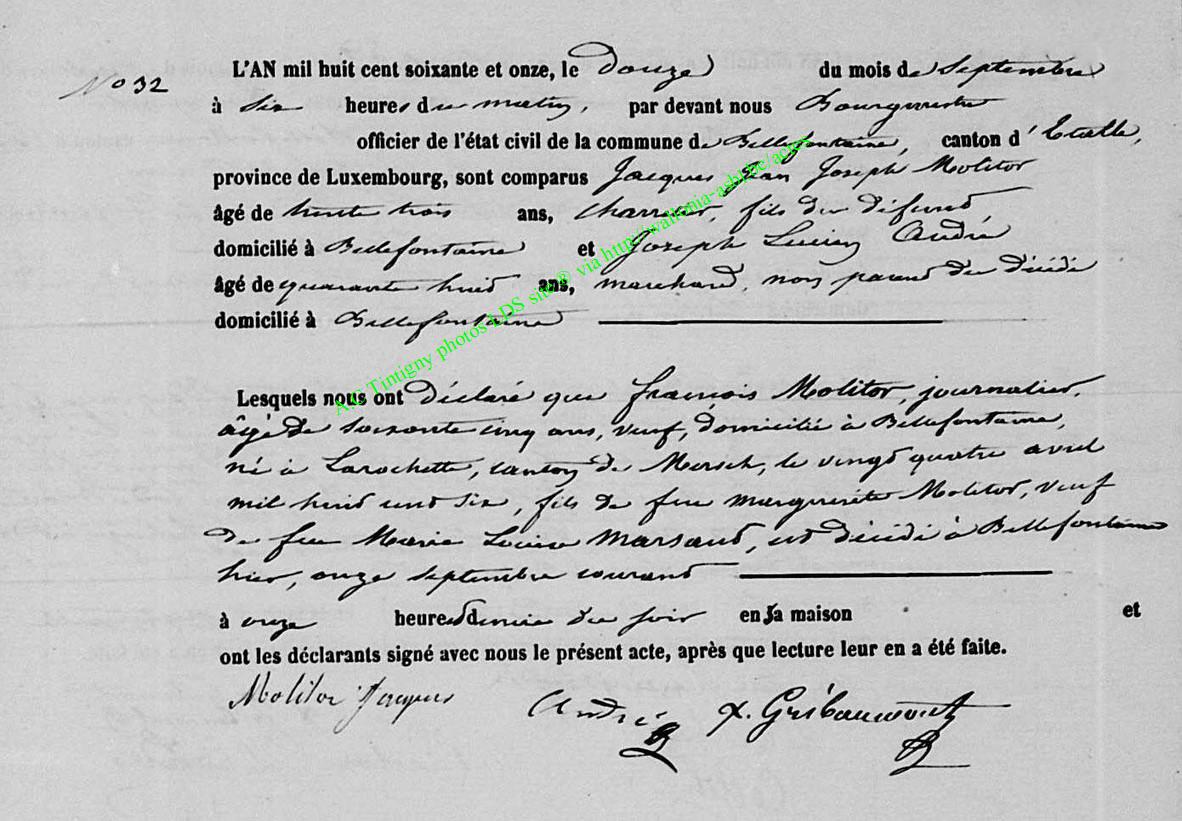 No 32
L'AN mil huit cent soixante et onze, le douze du mois de Septembre
à six heures du matin, par devant nous Bourgmestre
officier de l'état civil de la commune de Bellefontaine, canton d'Etalle,
province de Luxembourg, sont comparus Jacques Jean Joseph Molitor
âgé de trente trois ans, charron, fils du défunt
domicilié à Bellefontaine et Joseph Lucien André
âgé de quarante huit ans, marchand, non parent du décédé
domicilié à Bellefontaine
A.C Tintigny photos LDS site® via http://wallonia-asbl.be/actes
Lesquels nous ont déclaré que François Molitor, journalier,
âgé de soixante cinq ans, veuf, domicilié à Bellefontaine,
né à Larochette, canton de Mersch, le vingt quatre avril
mil huit cent six, fils de feu Marguerite Molitor, veuf
de feue Marie Lucie Marsaut, est décédé à Bellefontaine
hier, onze Septembre courant
à onze heures demie du soir en sa maison et
ont les déclarants signé avec nous le présent acte, après que lecture leur en a été faite.
Molitor Jacques André